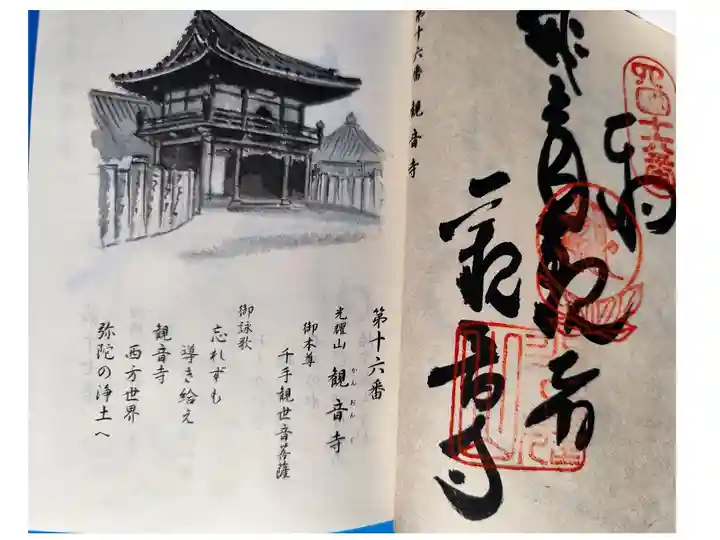 第十六番 観音寺
奉納
観音寺
第十六番
光耀山 観音寺
かんおんじ
御本尊
千手観世音菩薩
御詠歌
忘れずも
導き給え
観音寺
西方世界
弥陀の浄土へ